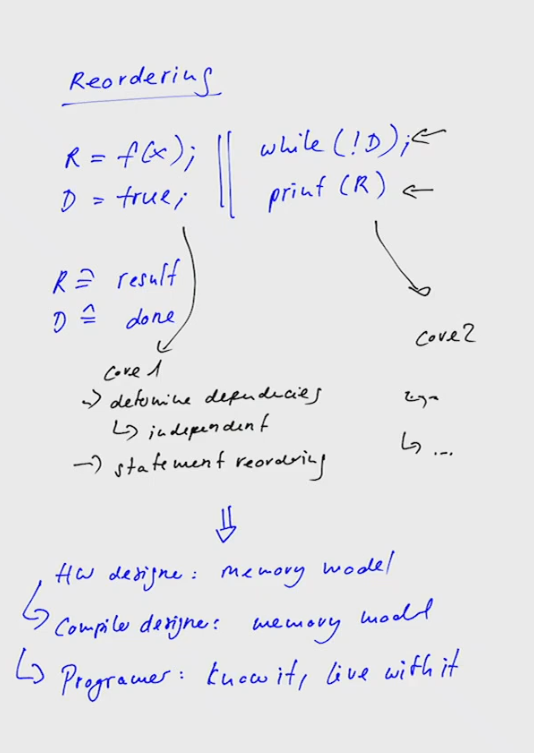 Reordering
R = f(x); || while (!D); ←
D = true; || print (R) ←
R ≙ result
D ≙ done
Core 1
→ determine dependecies
↳ independent
→ statement reordering
Core 2
↳ ...
⇓
HW designe: memory model
↳ Compile designe: memory model
↳ Programer: know it, live with it